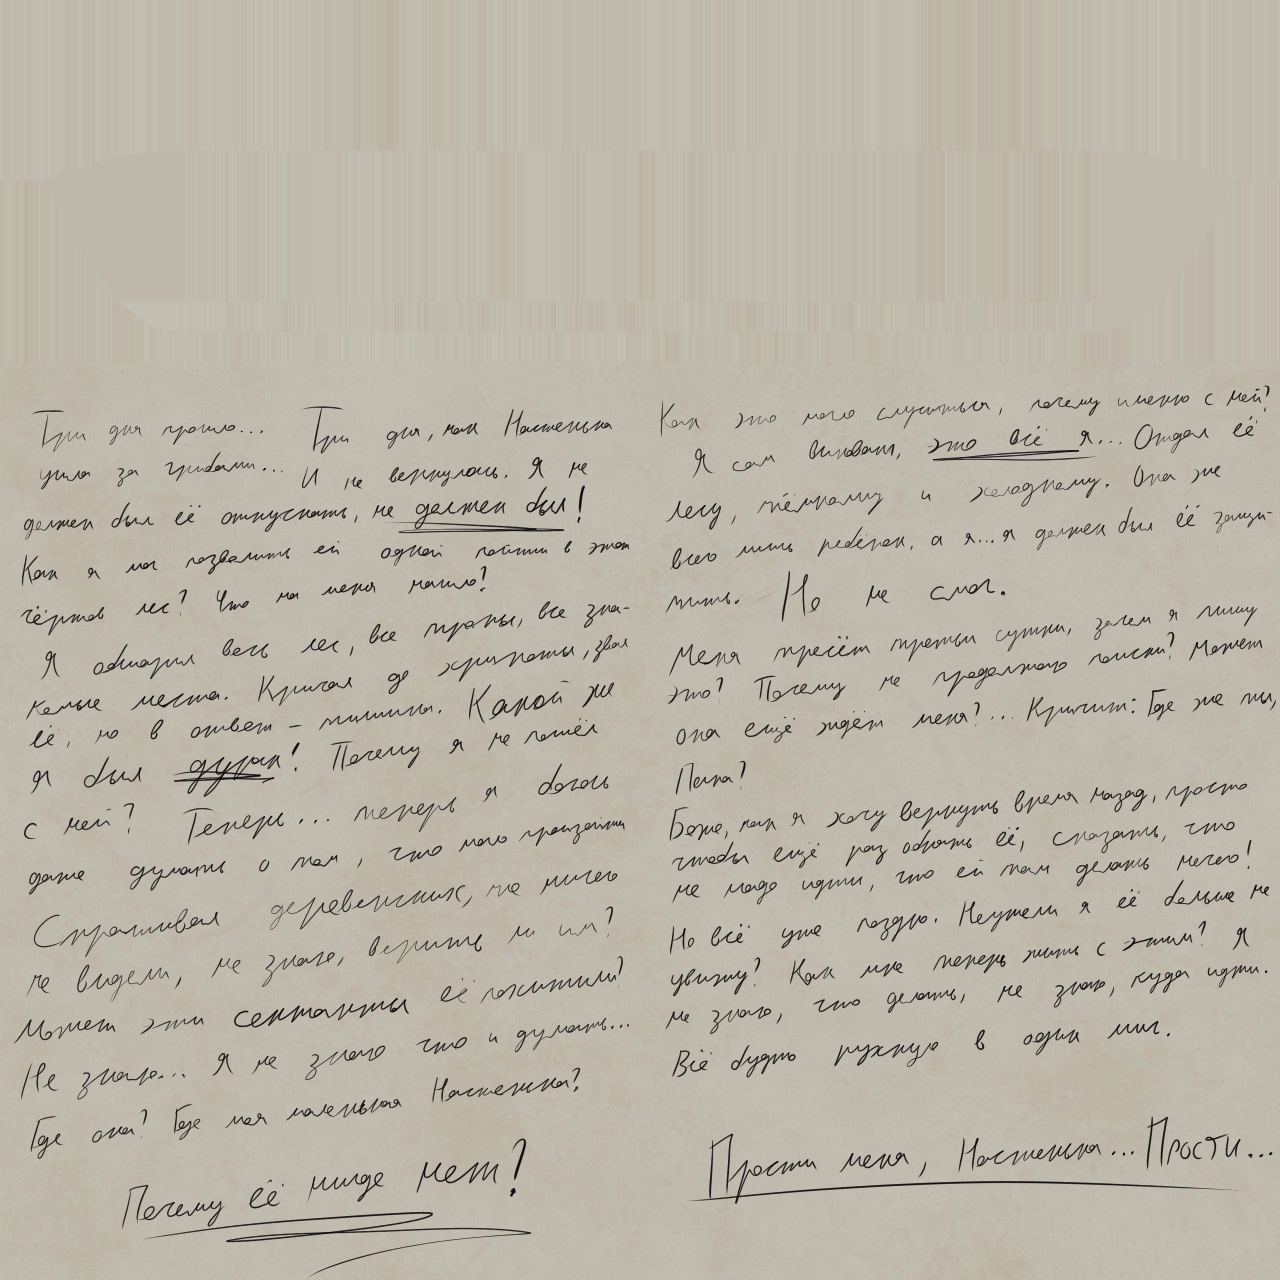 Три дня прошло... Три дня, как Настенька
ушла за грибами... И не вернулась. Я не
должен был её отпускать, не должен был!
Как я мог позволить ей одной пойти в этот
чёртов лес? Что на меня нашло?
Я обшарил весь лес, все тропы, все зна-
комые места. Кричал до хрипоты, звал
её, но в ответ – тишина. Какой же
я был дурак! Почему я не пошёл
с ней? Теперь... теперь я боюсь
даже думать о том, что могло произойти
Спрашивал деревенских, те ничего
не видели, не знаю, верить ли им?
Может эти сектанты её похитили?
Не знаю... Я не знаю что и думать...
Где она? Где моя маленькая Настенька?
Почему её нигде нет?
Как это могло случиться, почему именно с ней?
Я сам виноват, это всё я... Отдал её
лесу, тёмному и холодному. Она же
всего лишь ребёнок, а я... я должен был её защи-
тить. Но не смог.
Меня трясёт третьи сутки, зачем я пишу
это? Почему не продолжаю поиски? Может
она ещё ждёт меня?... Кричит: Где же ты,
Папа?
Боже, как я хочу вернуть время назад, просто
чтобы ещё раз обнять её, сказать, что
не надо идти, что ей там делать нечего!
Но всё уже поздно. Неужели я её больше не
увижу? Как мне теперь жить с этим? Я
не знаю, что делать, не знаю, куда идти.
Всё будто рухнуло в один миг.
Прости меня, Настенька... Прости...